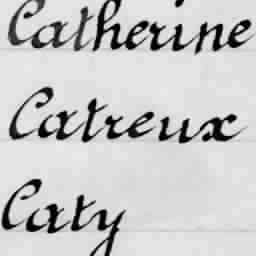 Catherine
Catreux
Caty